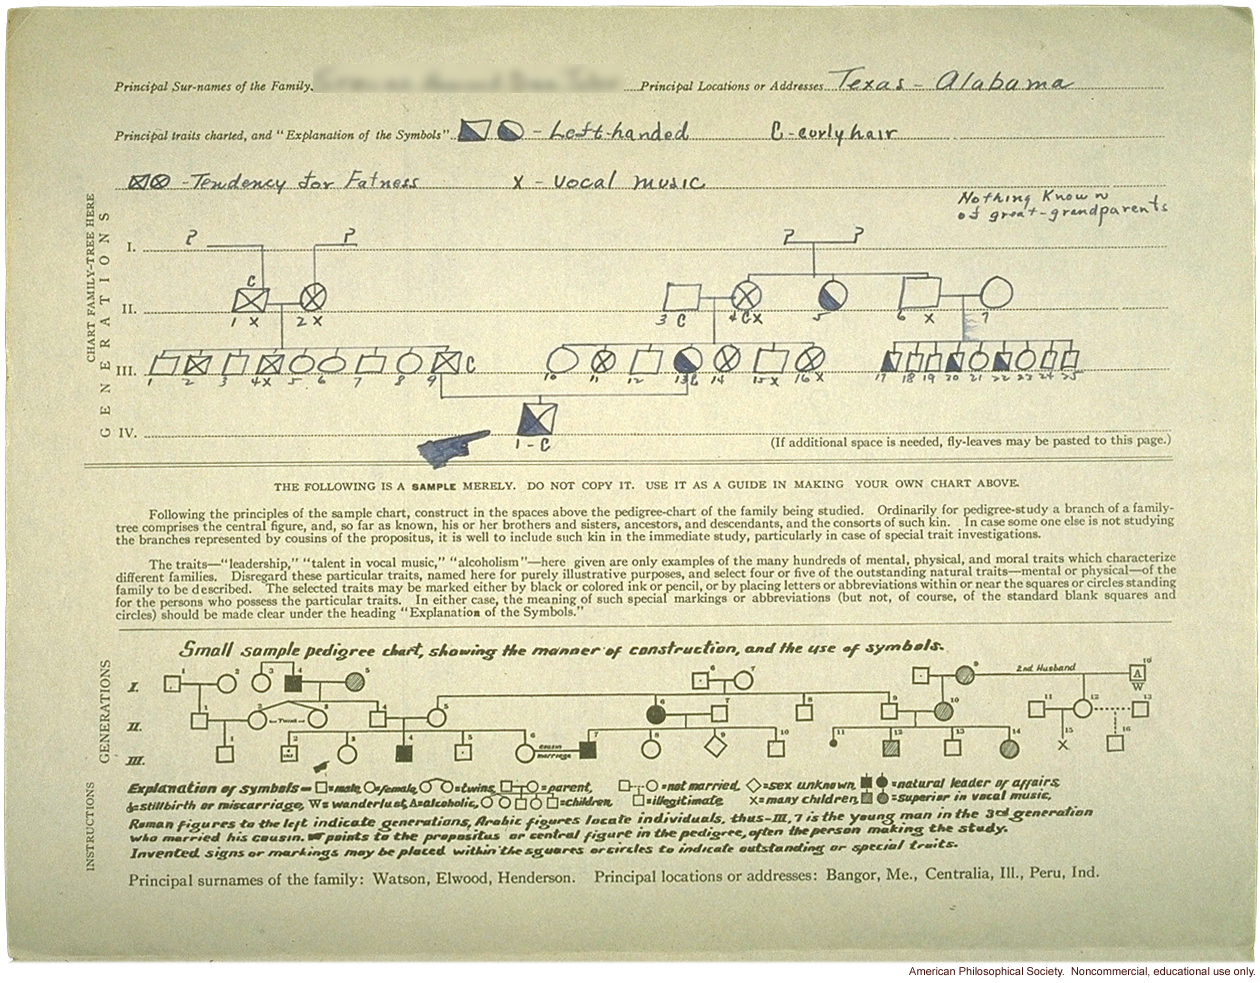 Principal Sur-names of the Family. Principal Locations or Addresses Texas - Alabama
Principal traits charted, and "Explanation of the Symbols" - Left-handed C-curly hair
-Tendency for Fatness X - Vocal music
Nothing Known
of great-grandparents
CHART FAMILY-TREE HERE
GENERATIONS
? ? ? ?
I.
C
II.
1 X 2 X 3 C 4 C X 5 6 X 7
III.
C
1 2 3 4X 5 6 7 8 9 10 11 12 13C 14 15 X 16 X 17 18 19 20 21 22 23 24 25
IV.
1 - C
(If additional space is needed, fly-leaves may be pasted to this page.)
THE FOLLOWING IS A SAMPLE MERELY. DO NOT COPY IT. USE IT AS A GUIDE IN MAKING YOUR OWN CHART ABOVE.
Following the principles of the sample chart, construct in the spaces above the pedigree-chart of the family being studied. Ordinarily for pedigree-study a branch of a family-
tree comprises the central figure, and, so far as known, his or her brothers and sisters, ancestors, and descendants, and the consorts of such kin. In case some one else is not studying
the branches represented by cousins of the propositus, it is well to include such kin in the immediate study, particularly in case of special trait investigations.
The traits—"leadership," "talent in vocal music," "alcoholism"—here given are only examples of the many hundreds of mental, physical, and moral traits which characterize
different families. Disregard these particular traits, named here for purely illustrative purposes, and select four or five of the outstanding natural traits—mental or physical—of the
family to be described. The selected traits may be marked either by black or colored ink or pencil, or by placing letters or abbreviations within or near the squares or circles standing
for the persons who possess the particular traits. In either case, the meaning of such special markings or abbreviations (but not, of course, of the standard blank squares and
circles) should be made clear under the heading "Explanation of the Symbols."
Small sample pedigree chart, showing the manner of construction, and the use of symbols.
GENERATIONS
I.
1 2 3 4 5 6 7 9 2nd Husband 10
A
W
II.
1 2 Twins 3 4 5 6 7 8 9 10 11 12 13
III.
1 2 3 4 5 6 cousin marriage 7 8 9 10 11 12 13 14 15 16
X
INSTRUCTIONS
Explanation of symbols— =male, =female, =twins, =parent, =not married, =sex unknown, =natural leader of affairs,
=stillbirth or miscarriage, W=wanderlust, A=alcoholic, =children, =illegitimate, x=many children, =superior in vocal music,
Roman figures to the left indicate generations, Arabic figures locate individuals, thus-III, 7 is the young man in the 3rd generation
who married his cousin. points to the propositus or central figure in the pedigree, often the person making the study.
Invented signs or markings may be placed within the squares or circles to indicate outstanding or special traits.
Principal surnames of the family: Watson, Elwood, Henderson. Principal locations or addresses: Bangor, Me., Centralia, Ill., Peru, Ind.
American Philosophical Society. Noncommercial, educational use only.